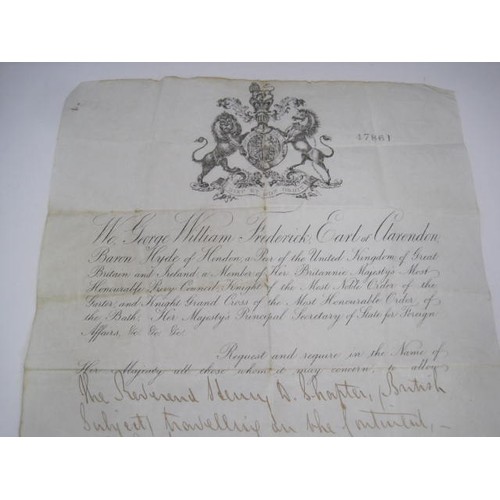 17861
DIEU ET MON DROIT
We, George William Frederick, Earl of Clarendon,
Baron Hyde of Hindon, a Peer of the United Kingdom of Great
Britain and Ireland, a Member of Her Britannic Majesty's Most
Honourable Privy Council, Knight of the Most Noble Order of the
Garter, and Knight Grand Cross of the Most Honourable Order of
the Bath, Her Majesty's Principal Secretary of State for Foreign
Affairs, &c. &c. &c.
Request and require in the Name of
Her Majesty all those whom it may concern, to allow
The Reverend Henry D. Shapter, British
Subject, travelling on the Continent, —